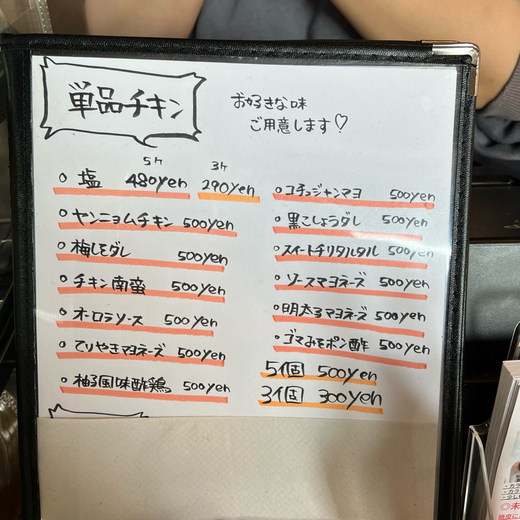 単品チキン
お好きな味
ご用意します♡
5ヶ 3ヶ
○ 塩 480yen 290yen
○ ヤンニョムチキン 500yen
○ 梅しそダレ 500yen
○ チキン南蛮 500yen
○ オーロラソース 500yen
○ てりやきマヨネーズ 500yen
○ 柚子風味酢鶏 500yen
○ コチュジャンマヨ 500yen
○ 黒こしょうダレ 500yen
○ スイートチリタルタル 500yen
○ ソースマヨネーズ 500yen
○ 明太子マヨネーズ 500yen
○ ゴマみそポン酢 500yen
5個 500yen
3個 300yen